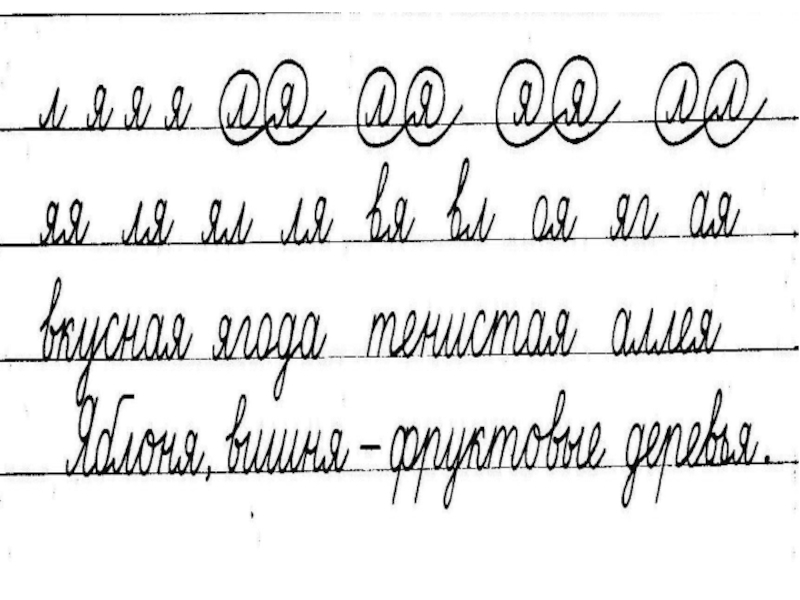 л я я я ля ля яя лл
яя ля ял ля вя вл оя яг ая
вкусная ягода тенистая аллея
Яблоня, вишня – фруктовые деревья.